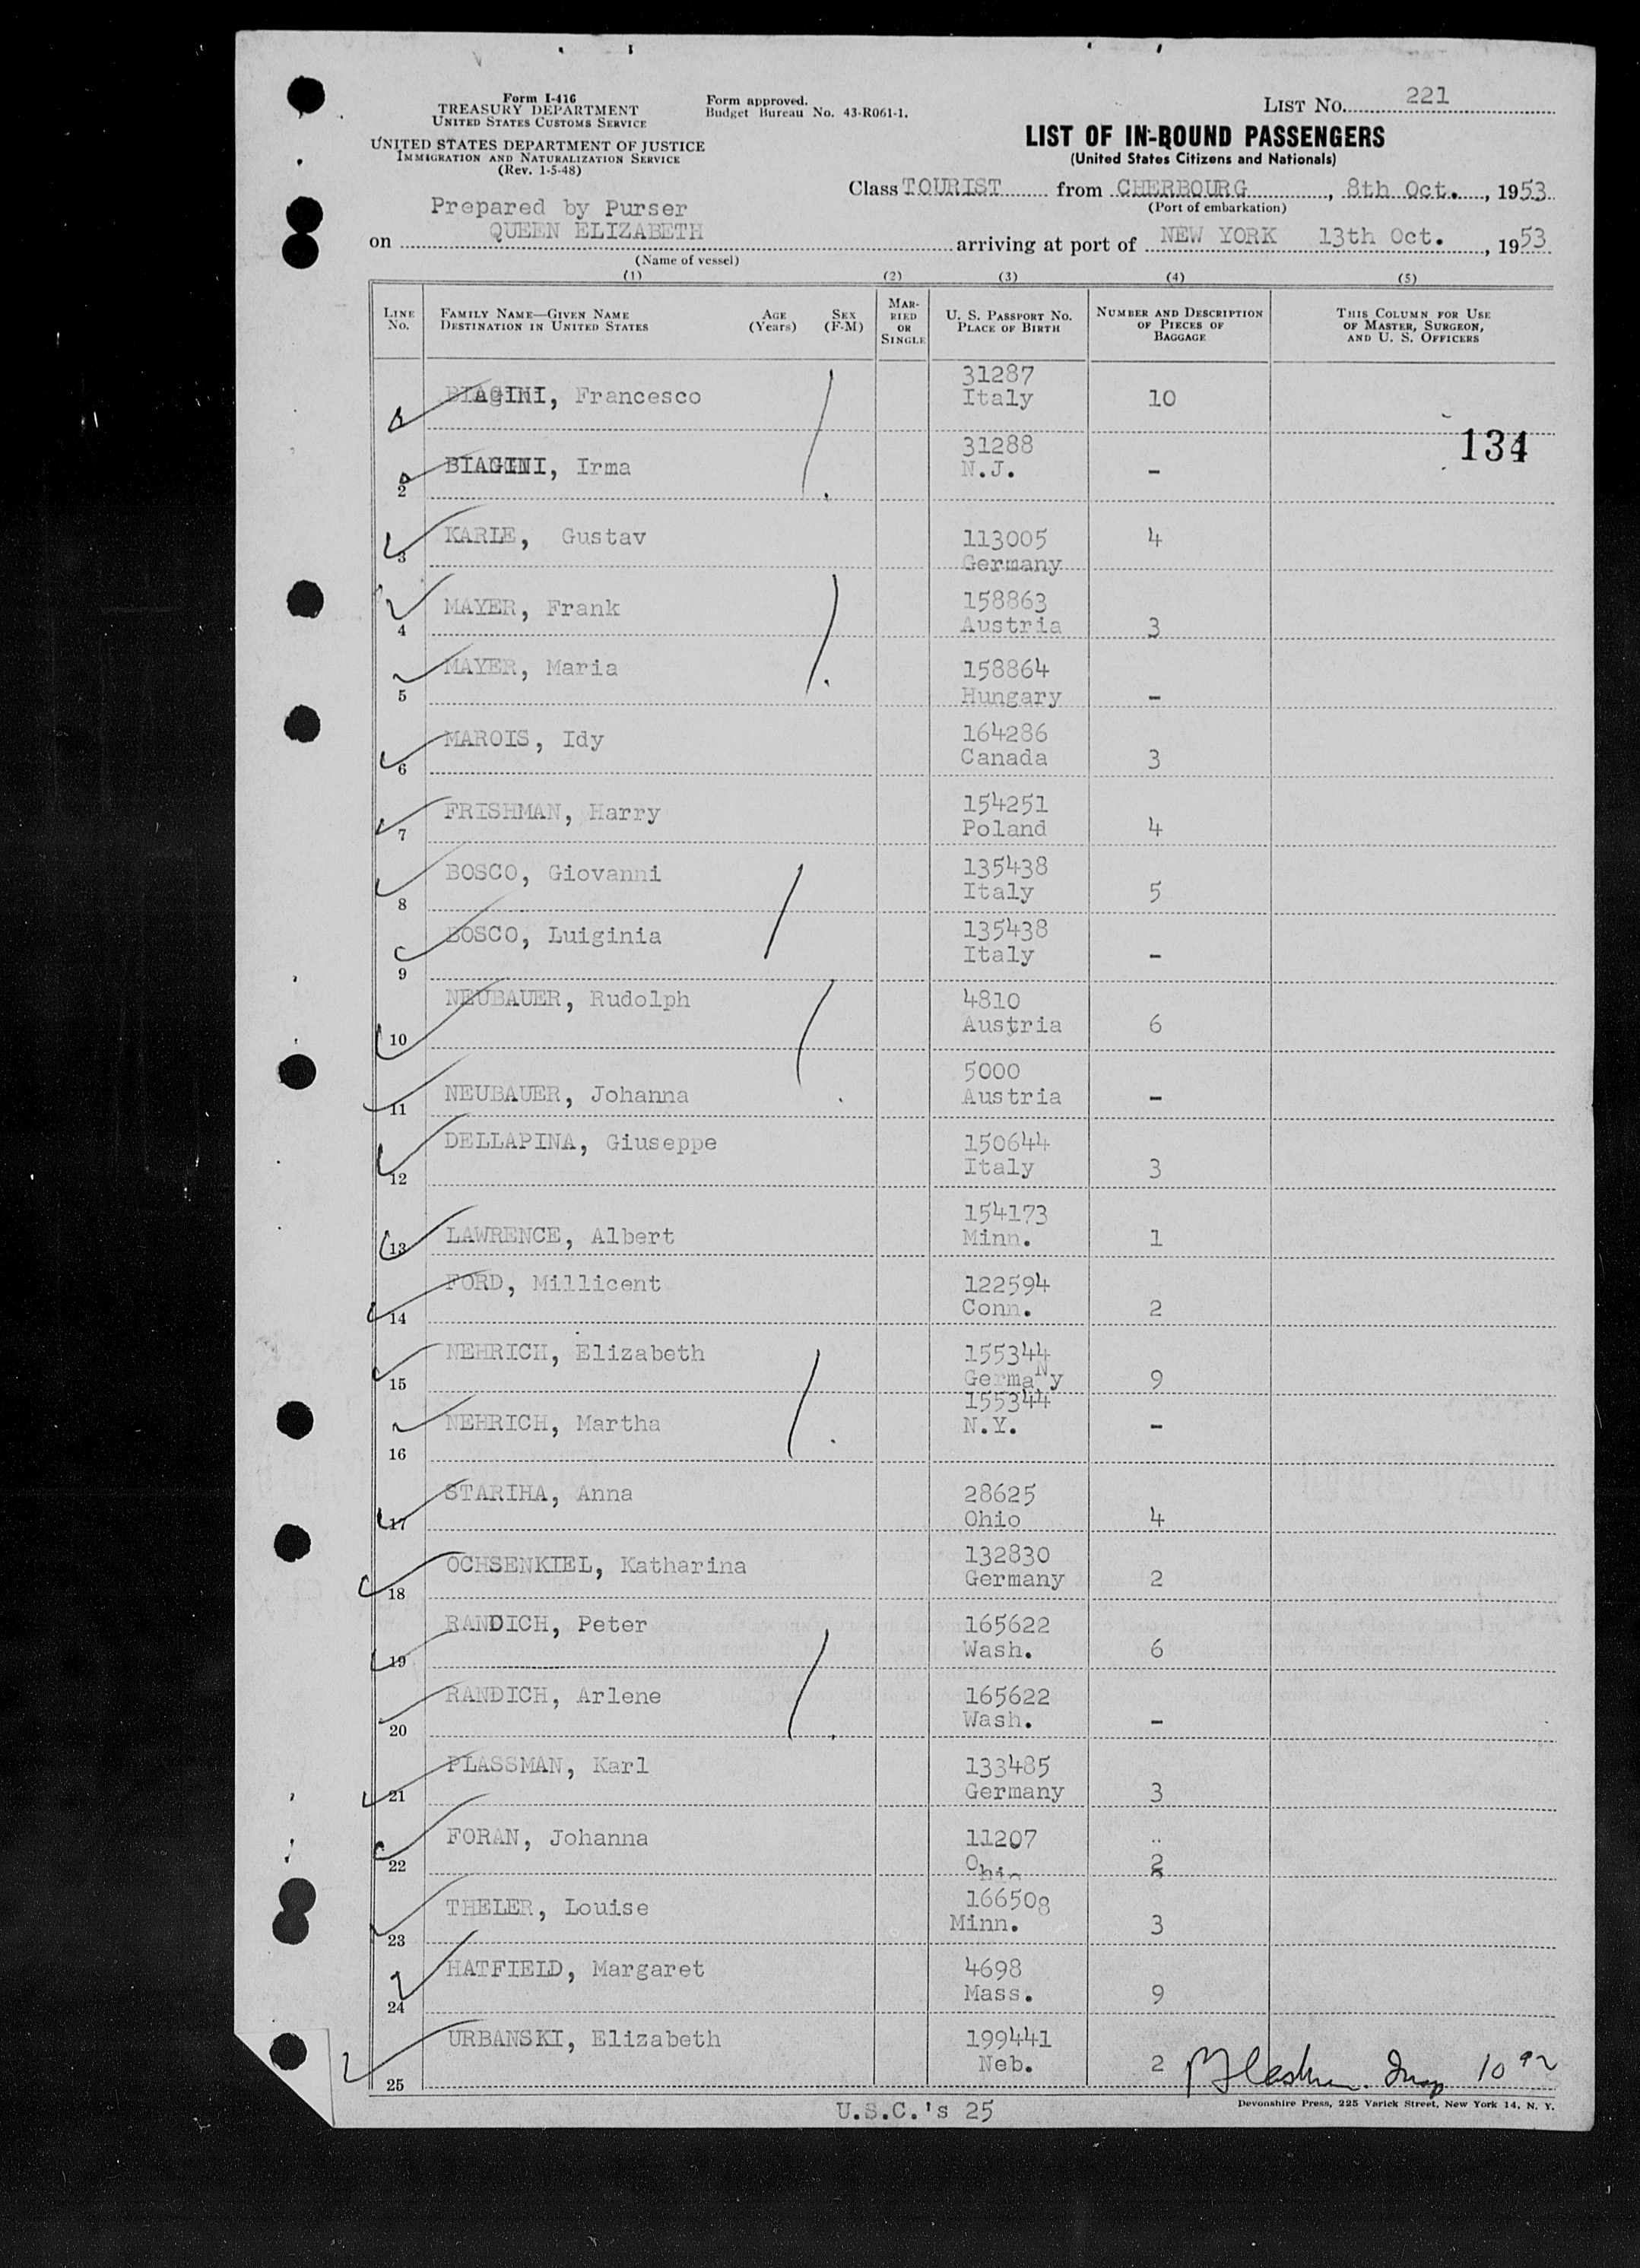 Form I-416
TREASURY DEPARTMENT
UNITED STATES CUSTOMS SERVICE
UNITED STATES DEPARTMENT OF JUSTICE
IMMIGRATION AND NATURALIZATION SERVICE
(Rev. 1-5-48)
Form approved.
Budget Bureau No. 43-R061-1.
LIST NO. 221
LIST OF IN-BOUND PASSENGERS
(United States Citizens and Nationals)
Class TOURIST from CHERBOURG, 8th Oct., 1953
(Port of embarkation)
Prepared by Purser
on QUEEN ELIZABETH arriving at port of NEW YORK 13th Oct., 1953
(Name of vessel)
(1) (2) (3) (4) (5)
LINE NO. FAMILY NAME—GIVEN NAME DESTINATION IN UNITED STATES AGE (Years) SEX (F-M) MARRIED OR SINGLE U. S. PASSPORT NO. PLACE OF BIRTH NUMBER AND DESCRIPTION OF PIECES OF BAGGAGE THIS COLUMN FOR USE OF MASTER, SURGEON, AND U. S. OFFICERS
BIAGINI, Francesco 31287 Italy 10
134
2 BIAGINI, Irma 31288 N.J. -
3 KARLE, Gustav 113005 Germany 4
4 MAYER, Frank 158863 Austria 3
5 MAYER, Maria 158864 Hungary -
6 MAROIS, Idy 164286 Canada 3
7 FRISHMAN, Harry 154251 Poland 4
8 BOSCO, Giovanni 135438 Italy 5
9 BOSCO, Luiginia 135438 Italy -
10 NEUBAUER, Rudolph 4810 Austria 6
11 NEUBAUER, Johanna 5000 Austria -
12 DELLAPINA, Giuseppe 150644 Italy 3
13 LAWRENCE, Albert 154173 Minn. 1
14 FORD, Millicent 122594 Conn. 2
15 NEHRICH, Elizabeth 155344 GermaNy 9
16 NEHRICH, Martha 155344 N.Y. -
17 STARIHA, Anna 28625 Ohio 4
18 OCHSENKIEL, Katharina 132830 Germany 2
19 RANDICH, Peter 165622 Wash. 6
20 RANDICH, Arlene 165622 Wash. -
21 PLASSMAN, Karl 133485 Germany 3
22 FORAN, Johanna 11207 Ohio 2
23 THELER, Louise 166508 Minn. 3
24 HATFIELD, Margaret 4698 Mass. 9
25 URBANSKI, Elizabeth 199441 Neb. 2
U.S.C.'s 25
Devonshire Press, 225 Varick Street, New York 14, N. Y.